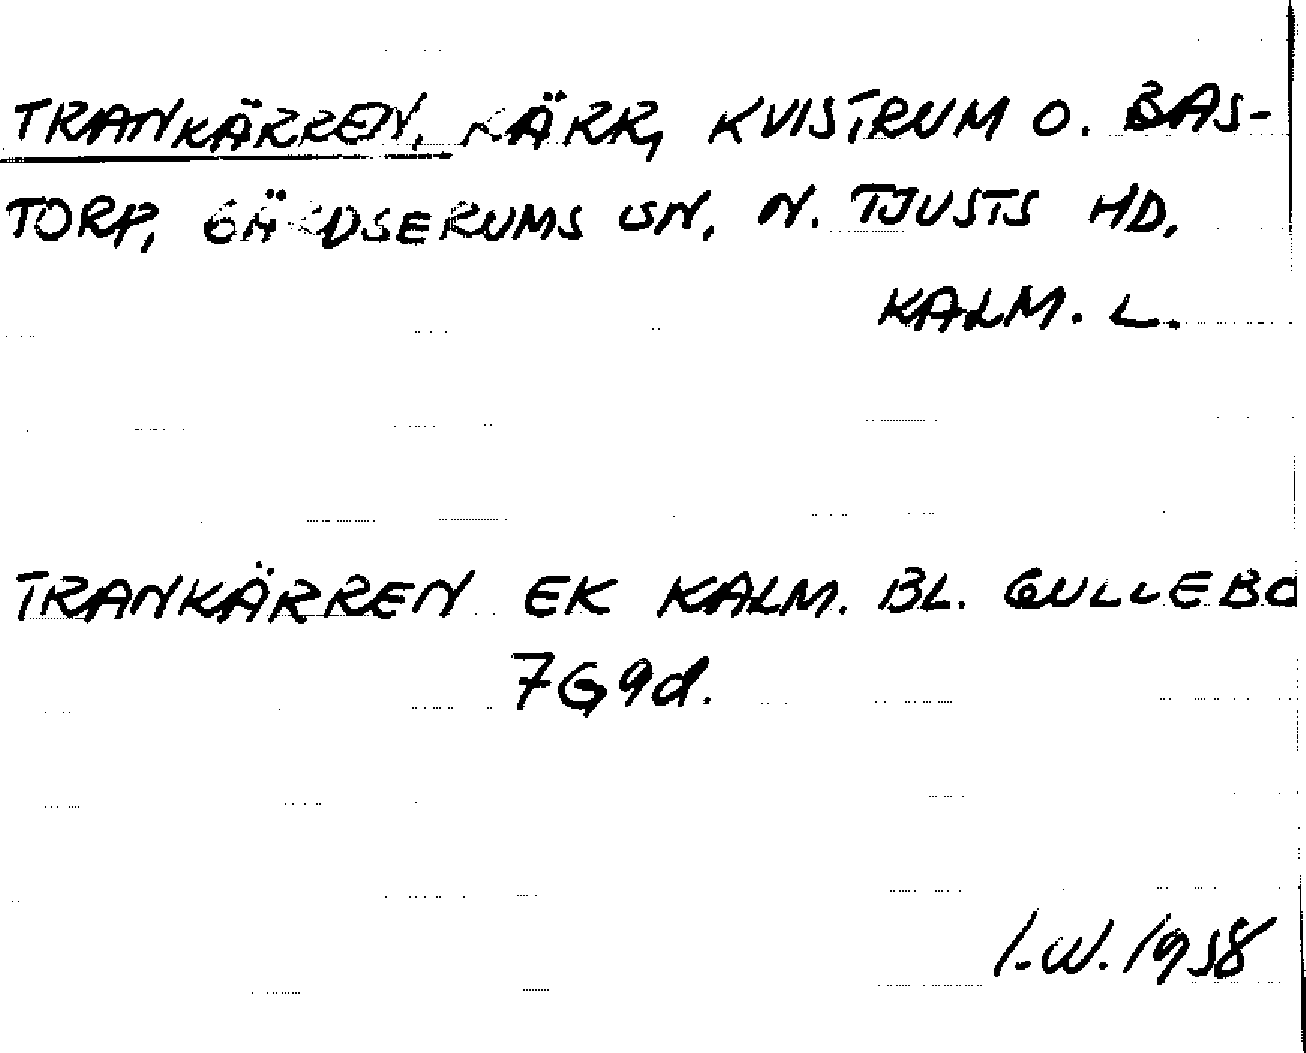 TRANKÄRREN, KÄRR, KVISTRUM O. BAS-
TORP, GÄRDSERUMS SN, N. TJUSTS HD,
KALM. L.
TRANKÄRREN EK KALM. BL. GULLEBO
7G9d.
I.W. 1958